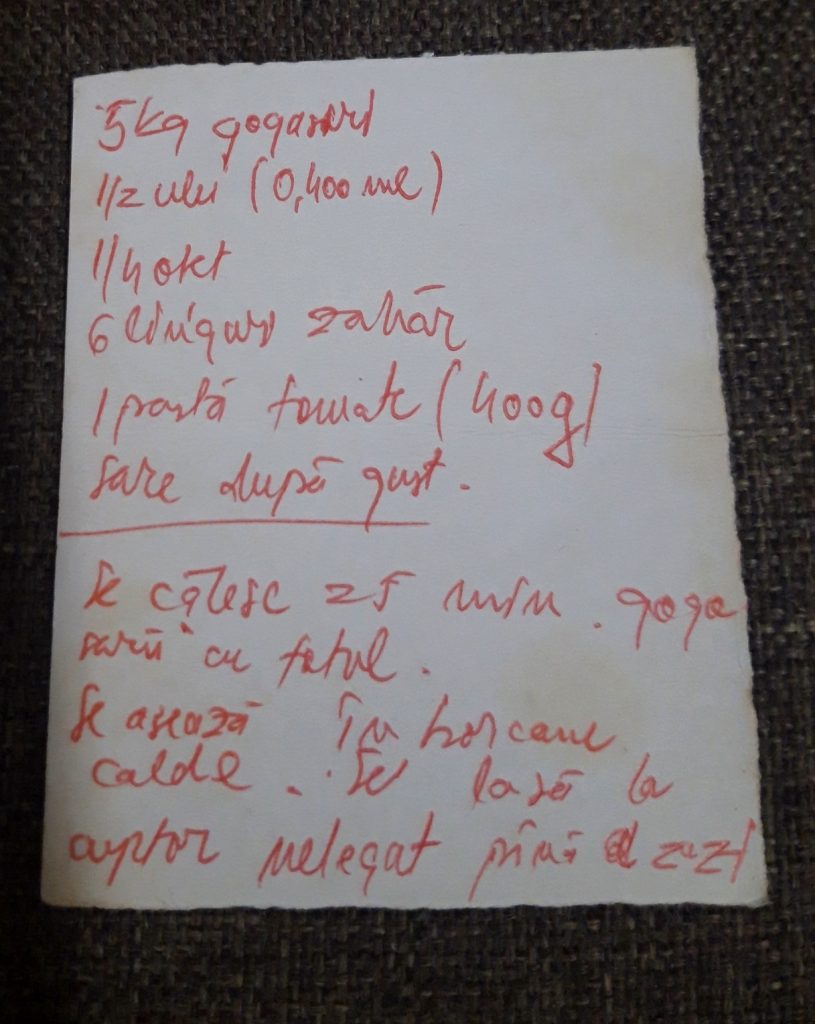 5kg gogasari
1/2 ulei (0,400 ml)
1/4 oțet
6 linguri zahăr
1 pastă tomate (400g)
sare după gust.
Se călesc 25 min. gogo
sarii cu totul.
Se asează în borcane
calde. Se lasă la
cuptor nelegat până a 2-a zi